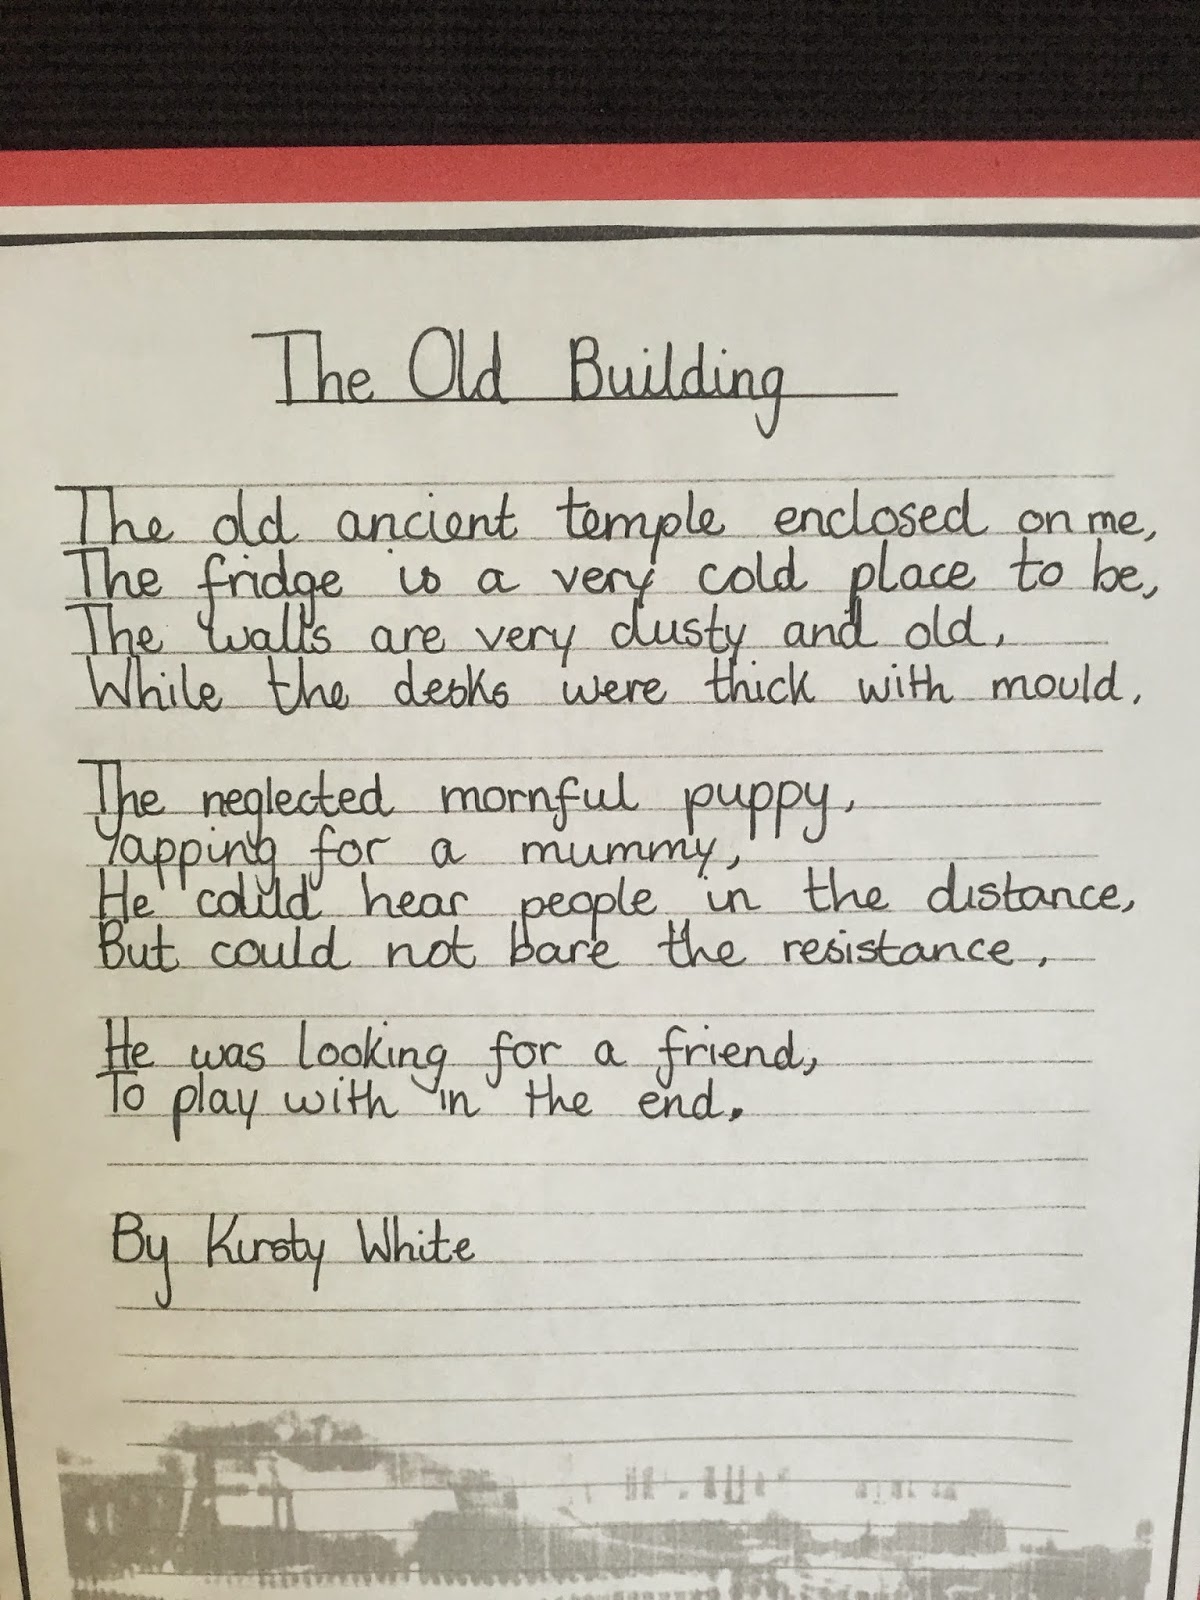 The Old Building
The old ancient temple enclosed on me,
The fridge is a very cold place to be,
The walls are very dusty and old,
While the desks were thick with mould.
The neglected mornful puppy,
Yapping for a mummy,
He could hear people in the distance,
But could not bare the resistance,
He was looking for a friend,
To play with in the end.
By Kirsty White